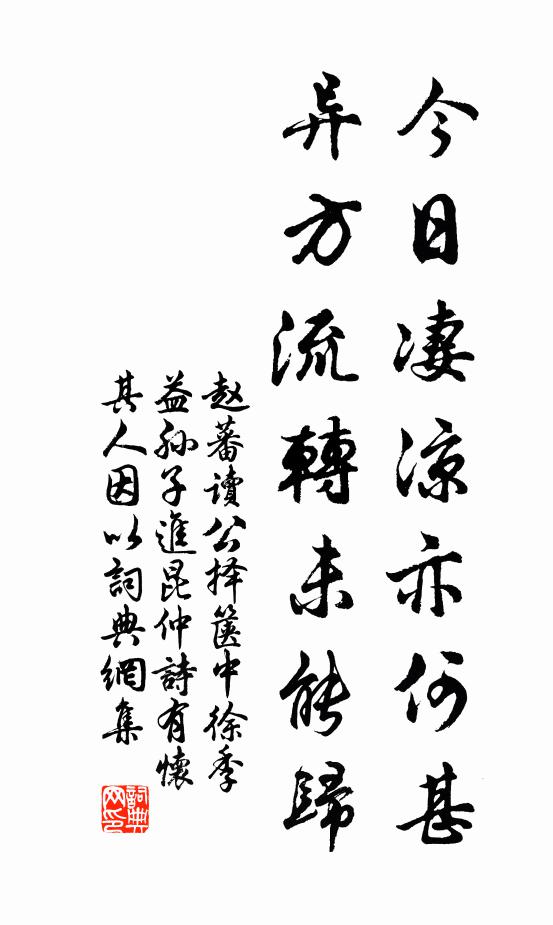 今日凄凉亦何甚
异方流轉未能歸
赵蕃讀公择箧中徐季
益孙子進昆仲詩有懷
其人因以詞典網集
詞典
网印